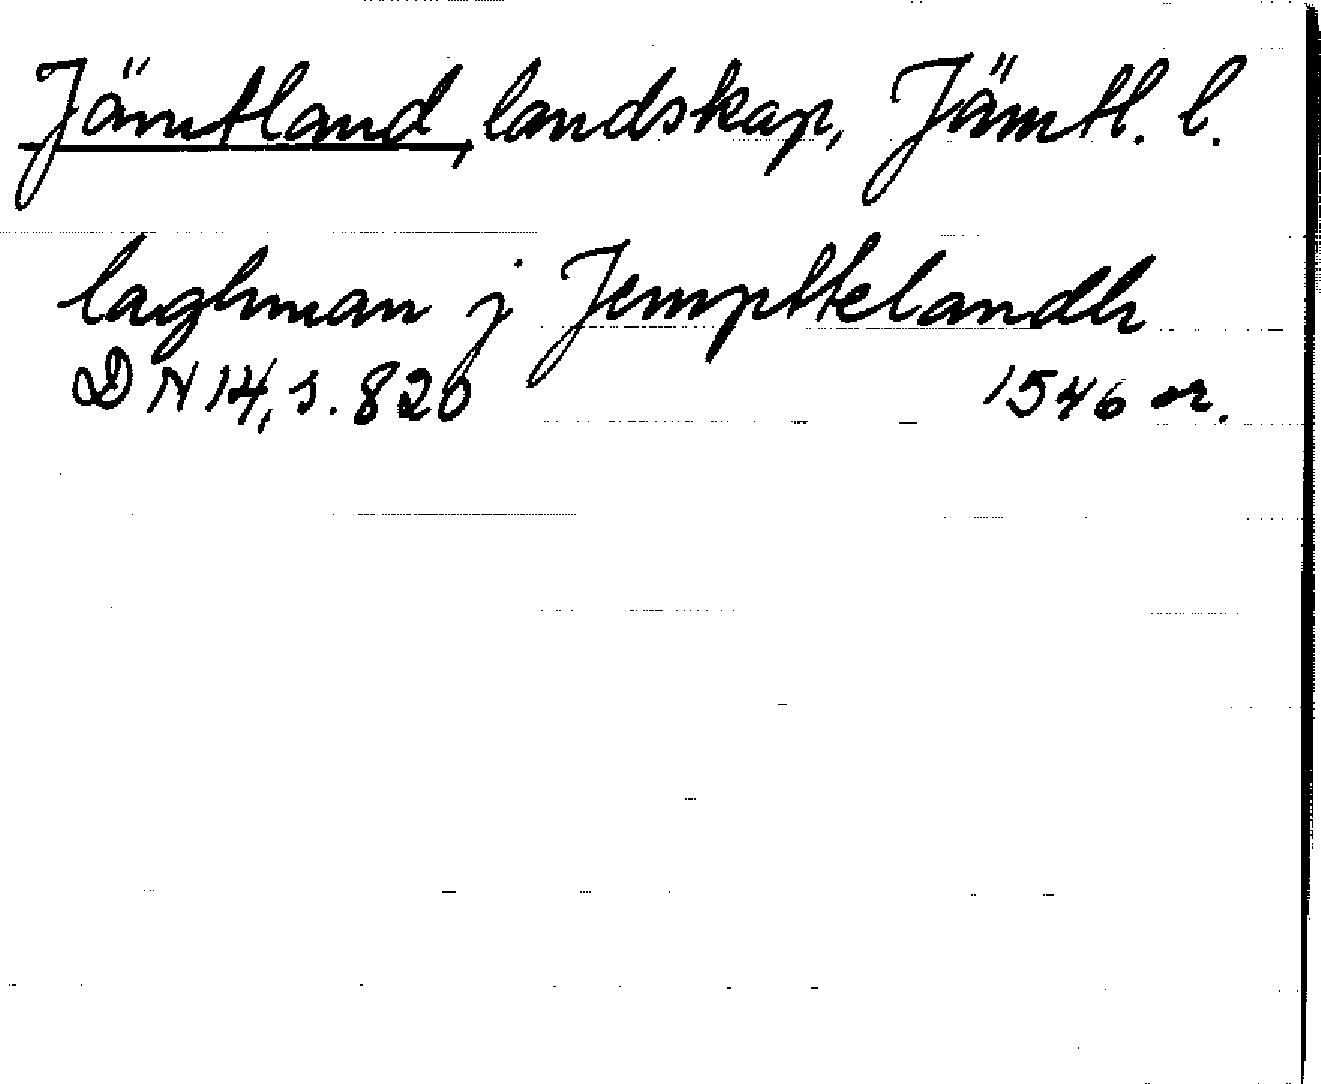 Jämtland, landskap, Jämtl. l.
laghman j Jempttelandh
DN 14, s. 820 1546 or.